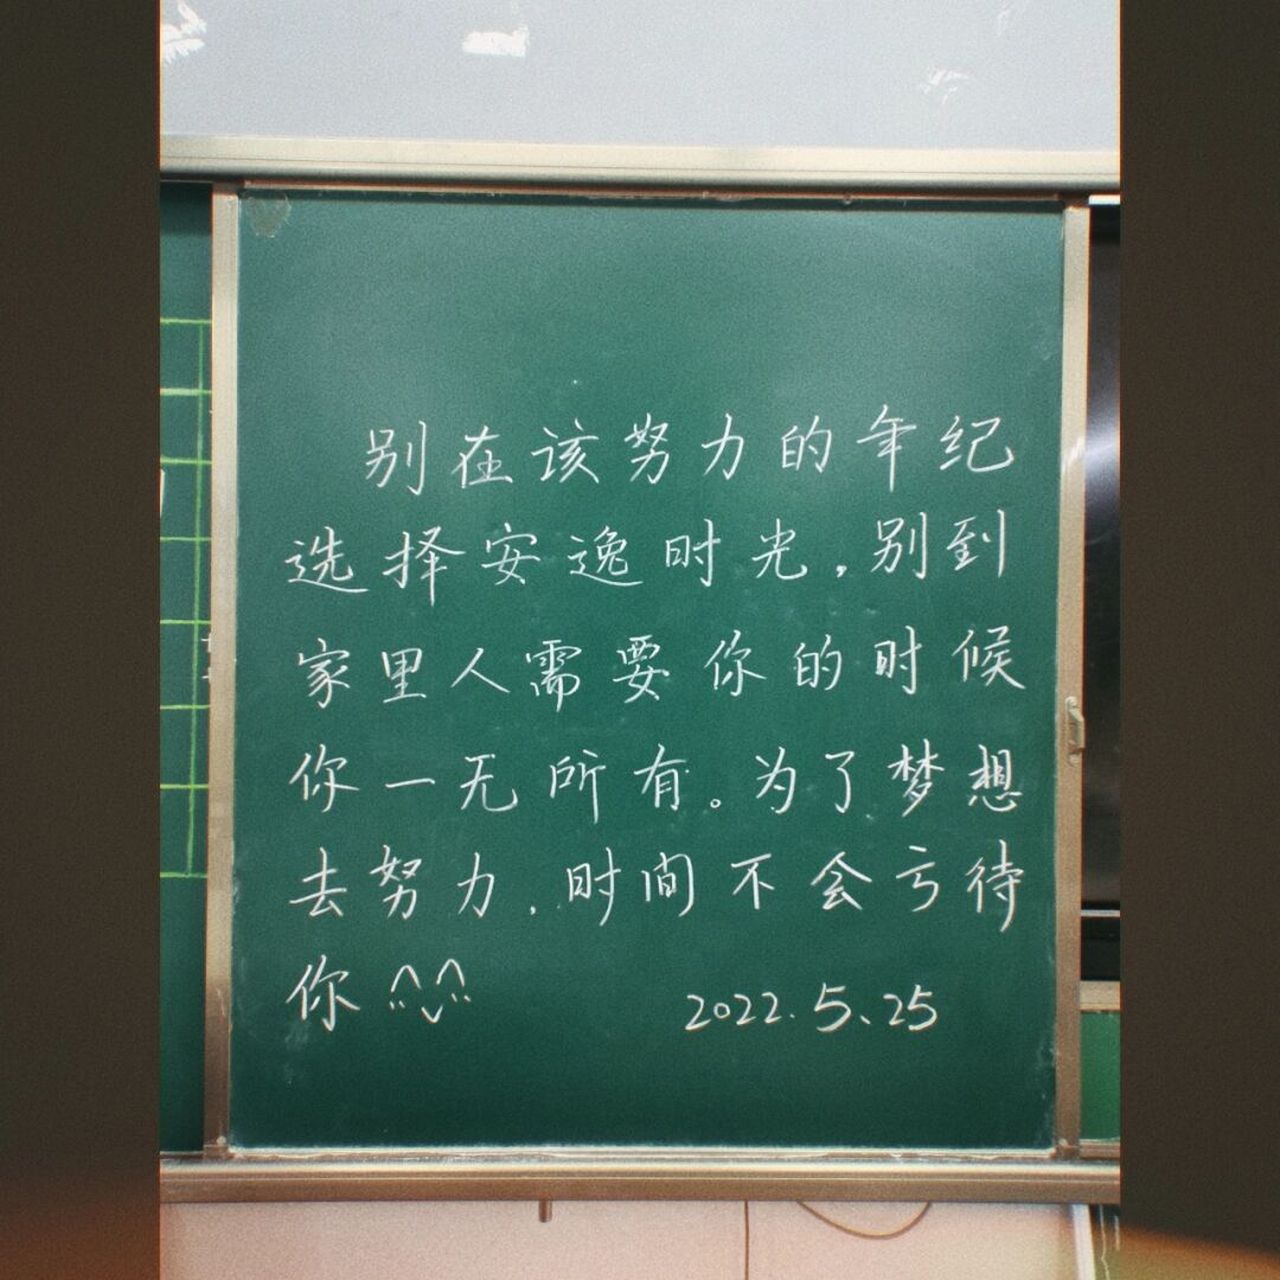 别在该努力的年纪
选择安逸时光，别到
家里人需要你的时候
你一无所有。为了梦想
去努力，时间不会亏待
你
2022.5、25